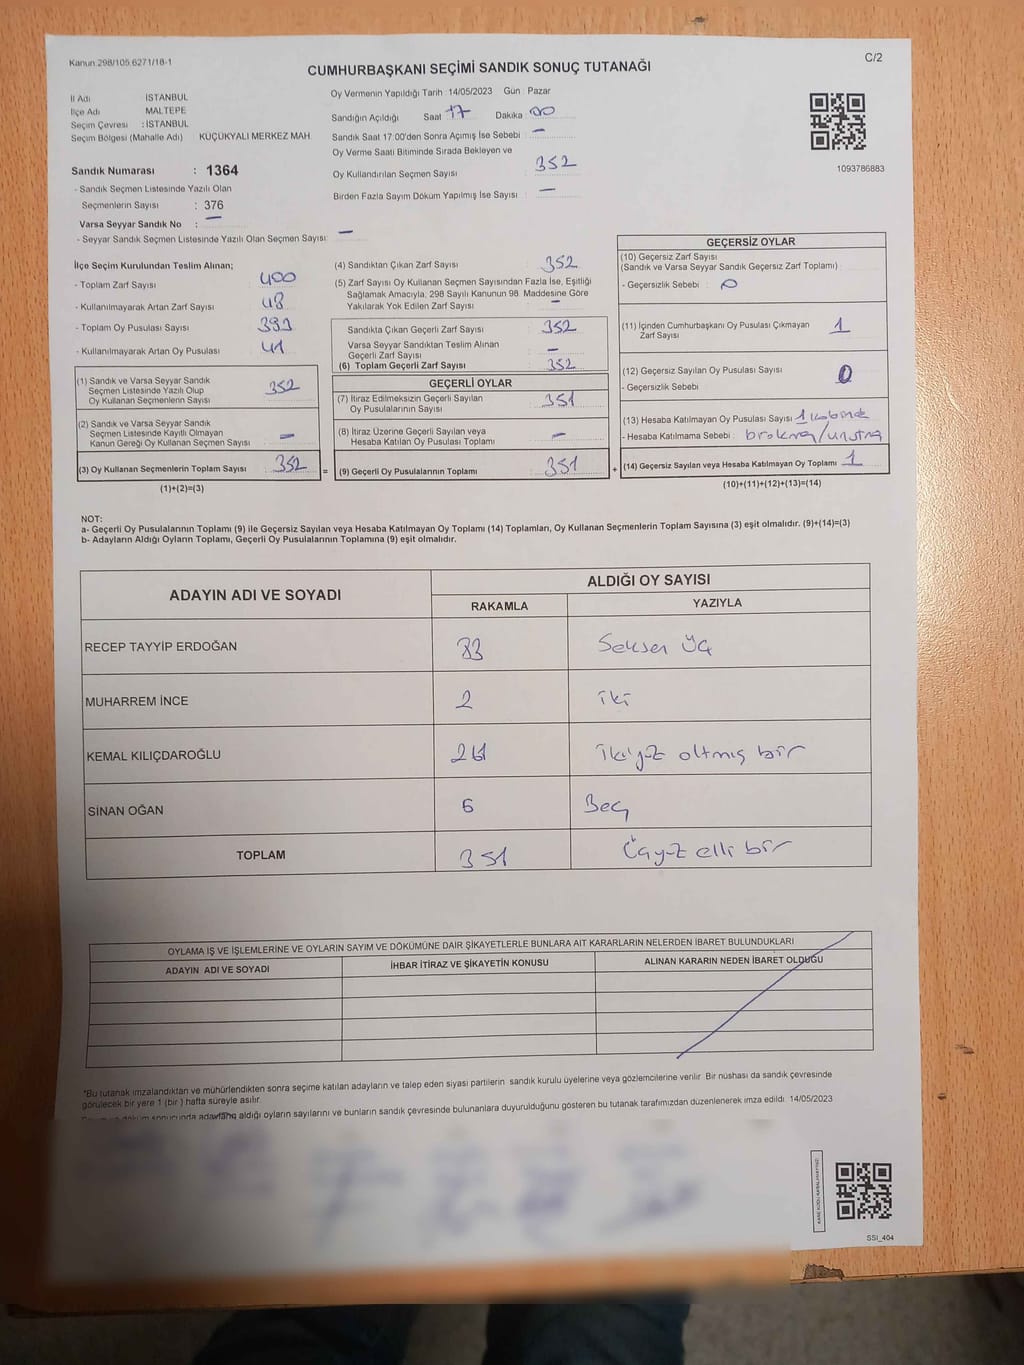 Kanun:298/105,6271/18-1
C/2
CUMHURBAŞKANI SEÇİMİ SANDIK SONUÇ TUTANAĞI
İl Adı İSTANBUL
İlçe Adı MALTEPE
Seçim Çevresi : İSTANBUL
Seçim Bölgesi (Mahalle Adı) KÜÇÜKYALI MERKEZ MAH
Sandık Numarası : 1364
- Sandık Seçmen Listesinde Yazılı Olan
Seçmenlerin Sayısı : 376
Varsa Seyyar Sandık No : —
- Seyyar Sandık Seçmen Listesinde Yazılı Olan Seçmen Sayısı —
Oy Vermenin Yapıldığı Tarih : 14/05/2023 Gün : Pazar
Sandığın Açıldığı Saat 17 Dakika 00
Sandık Saat 17:00'den Sonra Açımış İse Sebebi : —
Oy Verme Saati Bitiminde Sırada Bekleyen ve
Oy Kullandırılan Seçmen Sayısı : 352
Birden Fazla Sayım Döküm Yapılmış İse Sayısı : —
1093786883
İlçe Seçim Kurulundan Teslim Alınan;
- Toplam Zarf Sayısı 400
- Kullanılmayarak Artan Zarf Sayısı 48
- Toplam Oy Pusulası Sayısı 393
- Kullanılmayarak Artan Oy Pusulası 41
(1) Sandık ve Varsa Seyyar Sandık
Seçmen Listesinde Yazılı Olup
Oy Kullanan Seçmenlerin Sayısı 352
(2) Sandık ve Varsa Seyyar Sandık
Seçmen Listesinde Kayıtlı Olmayan
Kanun Gereği Oy Kullanan Seçmen Sayısı —
(3) Oy Kullanan Seçmenlerin Toplam Sayısı 352 =
(1)+(2)=(3)
(4) Sandıktan Çıkan Zarf Sayısı 352
(5) Zarf Sayısı Oy Kullanan Seçmen Sayısından Fazla İse, Eşitliği
Sağlamak Amacıyla, 298 Sayılı Kanunun 98. Maddesine Göre
Yakılarak Yok Edilen Zarf Sayısı —
Sandıkta Çıkan Geçerli Zarf Sayısı 352
Varsa Seyyar Sandıktan Teslim Alınan
Geçerli Zarf Sayısı —
(6) Toplam Geçerli Zarf Sayısı 352
GEÇERLİ OYLAR
(7) İtiraz Edilmeksizin Geçerli Sayılan
Oy Pusulalarının Sayısı 351
(8) İtiraz Üzerine Geçerli Sayılan veya
Hesaba Katılan Oy Pusulası Toplamı —
(9) Geçerli Oy Pusulalarının Toplamı 351 +
GEÇERSİZ OYLAR
(10) Geçersiz Zarf Sayısı
(Sandık ve Varsa Seyyar Sandık Geçersiz Zarf Toplamı)
- Geçersizlik Sebebi : 0
(11) İçinden Cumhurbaşkanı Oy Pusulası Çıkmayan
Zarf Sayısı 1
(12) Geçersiz Sayılan Oy Pusulası Sayısı
- Geçersizlik Sebebi 0
(13) Hesaba Katılmayan Oy Pusulası Sayısı 1 kabinde
- Hesaba Katılmama Sebebi :
(14) Geçersiz Sayılan veya Hesaba Katılmayan Oy Toplamı 1
(10)+(11)+(12)+(13)=(14)
NOT:
a- Geçerli Oy Pusulalarının Toplamı (9) ile Geçersiz Sayılan veya Hesaba Katılmayan Oy Toplamı (14) Toplamları, Oy Kullanan Seçmenlerin Toplam Sayısına (3) eşit olmalıdır. (9)+(14)=(3)
b- Adayların Aldığı Oyların Toplamı, Geçerli Oy Pusulalarının Toplamına (9) eşit olmalıdır.
ADAYIN ADI VE SOYADI
ALDIĞI OY SAYISI
RAKAMLA YAZIYLA
RECEP TAYYİP ERDOĞAN 83 Seksen Üç
MUHARREM İNCE 2 iki
KEMAL KILIÇDAROĞLU 261 ikiyüz altmış bir
SİNAN OĞAN 5 Beş
TOPLAM 351 Üçyüz elli bir
OYLAMA İŞ VE İŞLEMLERİNE VE OYLARIN SAYIM VE DÖKÜMÜNE DAİR ŞİKAYETLERLE BUNLARA AİT KARARLARIN NELERDEN İBARET BULUNDUKLARI
ADAYIN ADI VE SOYADI İHBAR İTİRAZ VE ŞİKAYETİN KONUSU ALINAN KARARIN NEDEN İBARET OLDUĞU
*Bu tutanak imzalandıktan ve mühürlendikten sonra seçime katılan adayların ve talep eden siyasi partilerin sandık kurulu üyelerine veya gözlemcilerine verilir. Bir nüshası da sandık çevresinde
görülecek bir yere 1 (bir ) hafta süreyle asılır.
adayların aldığı oyların sayılarını ve bunların sandık çevresinde bulunanlara duyurulduğunu gösteren bu tutanak tarafımızdan düzenlenerek imza edildi. 14/05/2023
SSI_404